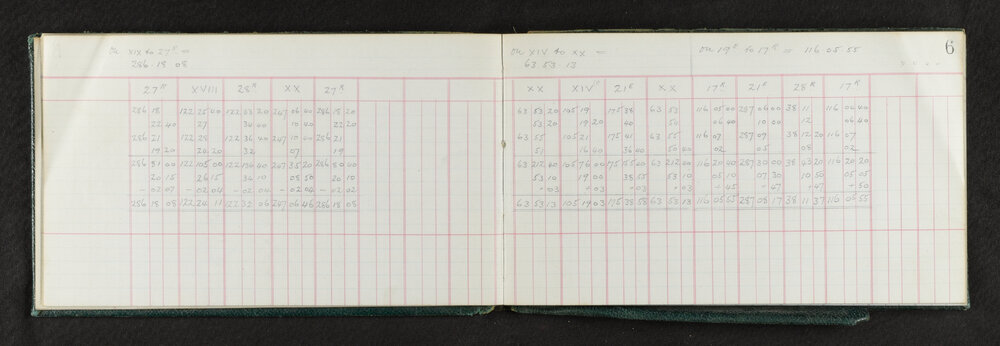 On XIX to 27R =
286 . 18 08
27R XVIII 28R XX 27R
286 18 122 25 40 122 33 20 247 06 40 286 18 20
22 40 27 34 00 10 40 22 20
286 21 122 28 122 36 40 247 10 00 286 21
19 20 24 20 32 07 19
286 81 00 122 105 00 122 136 40 247 35 20 286 80 40
20 15 26 15 34 10 08 50 20 10
- 02 07 - 02 04 - 02 04 - 02 04 - 02 02
286 18 08 122 24 11 122 32 06 247 06 46 286 18 08
6
On XIV to XX =
63 . 53 . 13
On 19R to 17R = 116 05.55
XX XIV 21R XX 17R 21R 28R 17R
63 53 20 105 19 175 38 63 53 116 05 00 287 06 00 38 11 116 06 40
53 20 19 20 40 54 06 40 10 00 12 06 40
63 55 105 21 175 41 63 55 116 07 287 09 38 12 20 116 07
51 16 40 36 40 50 40 02 05 08 02
63 212 40 105 76 00 175 155 40 63 212 40 116 20 40 287 30 00 38 43 20 116 20 20
53 10 19 00 38 55 53 10 05 10 07 30 10 50 05 05
+ 03 + 03 + 03 + 03 + 45 + 47 + 47 + 50
63 53 13 105 19 03 175 38 58 63 53 13 116 05 55 287 08 17 38 11 37 116 05 55